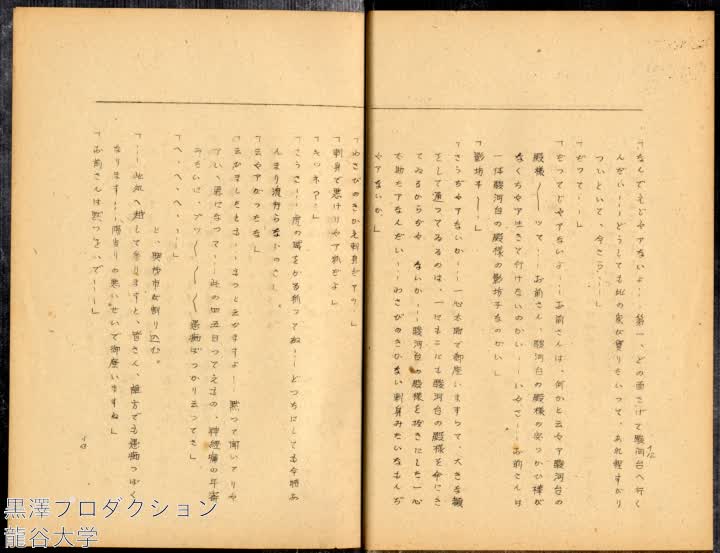 「なんでもぢやアないよ……第一、どの面さげて駿河台へ行く
んだい……どうしても此の家が買りをいって、あれ程すがり
ついといて、今さら……」
「だつて……」
「だつてぢやアないよ……お前さんは、何かと云やア駿河台の
殿様〳〵ツて……お前さん、駿河台の殿様の安つかひ様が
なくちやア生きて行けないのかい……いやさ……お前さんは
一体駿河台の殿様の影坊子なのかい」
「影坊子〳〵」
「さうぢやアないか……一心太助で御座いますつて、大きな顔
をして通つてゐるのは、一にも二にも駿河台の殿様を傘にき
てゐるからぢやないか……駿河台の殿様を抜きにした一心
太助たアなんだい……わさびのきかない刺身みたいなもんぢ
やアないか」
「わさびのきかねえ刺身だアッ」
「刺身で悪けりやア狐だよ」
「キツネ?」
「さうさ……虎の威をかる狐つてね……どつちにしても今時あ
んまり流行らないのさ」
「云やアがつたな」
「云がましたとも……まつと云がますよ……黙つて聞いてりや
アいゝ気になつて……此の四五日つてえもの、神経痛の年寄
みたいに、ブツ〳〵〳〵愚痴ばつかり云つてさ」
「ヘ、ヘ、ヘ、……」
と、彌抄市が割り込む。
「……此処へ越して参りますと、皆さん、誰方でも愚痴つぽく
なります……陽当りの悪いせいで御座いますね」
「お前さんは黙つといで……」
黒澤プロダクション
龍谷大学